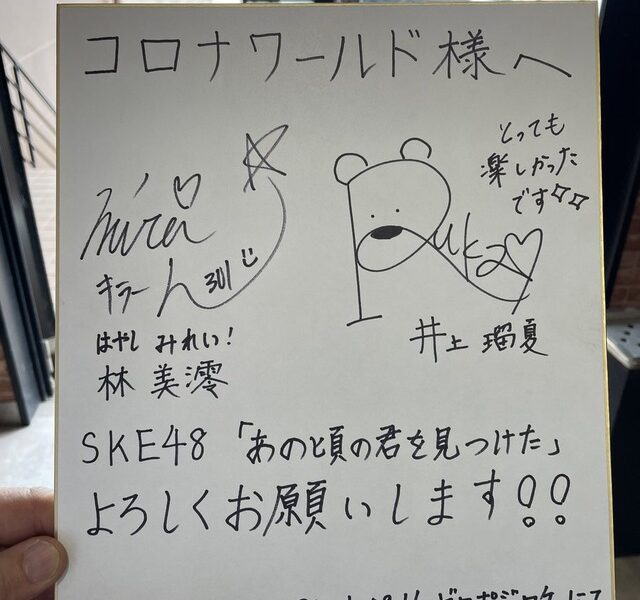 コロナワールド様へ
とっても
楽しかった
です
Ruka
はやし みれい!
林 美澪
井上 瑠夏
SKE48「あの頃の君を見つけた」
よろしくお願いします!!